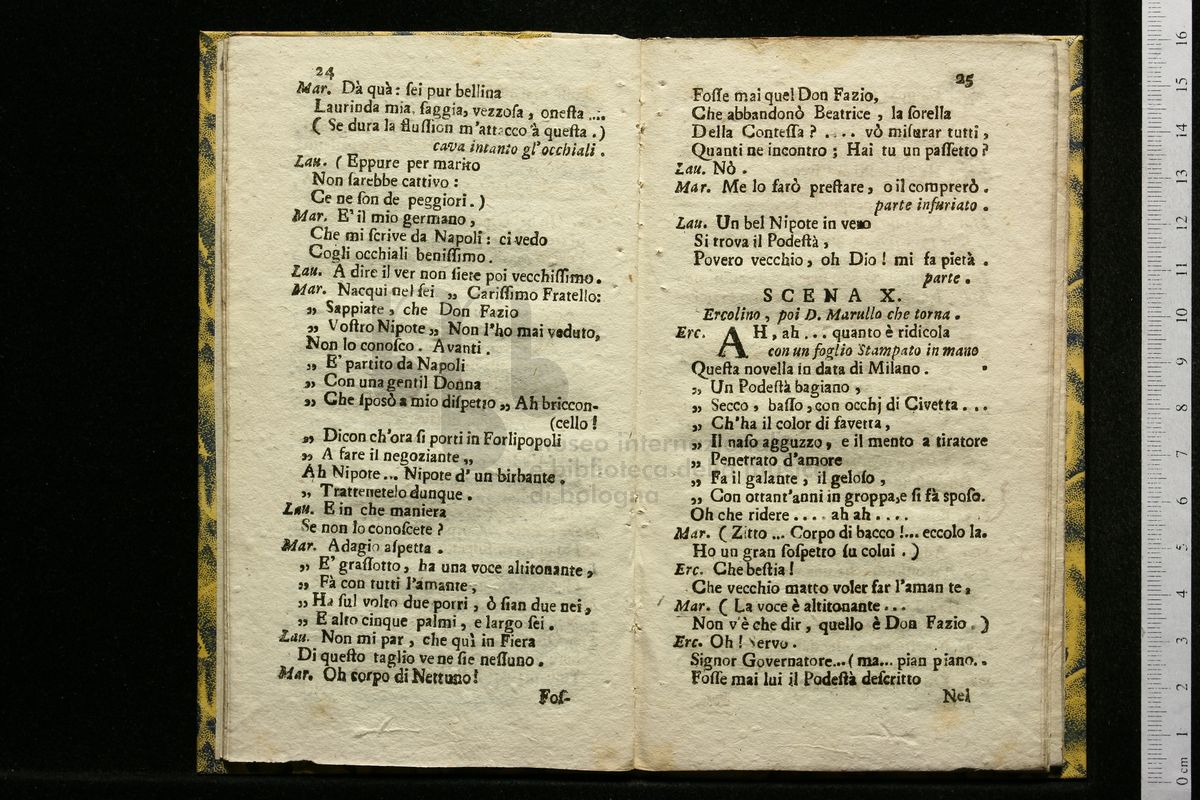 24
Mar. Dà quà: ſei pur bellina
Laurinda mia, ſaggia, vezzoſa, oneſta ....
( Se dura la fluſſion m'attacco à queſta . )
cava intanto gl'occhiali .
Lau. ( Eppure per marito
Non ſarebbe cattivo :
Ce ne ſon de peggiori . )
Mar. E' il mio germano ,
Che mi ſcrive da Napoli : ci vedo
Cogli occhiali beniſſimo .
Lau. A dire il ver non ſiete poi vecchiſſimo .
Mar. Nacqui nel ſei „ Cariſſimo Fratello:
„ Sappiate , che Don Fazio
„ Voſtro Nipote „ Non l'ho mai veduto,
Non lo conoſco . Avanti .
„ E' partito da Napoli
„ Con una gentil Donna
„ Che ſposò a mio diſpetto „ Ah briccon-
(cello !
„ Dicon ch'ora ſi porti in Forlipopoli
„ A fare il negoziante „
Ah Nipote ... Nipote d' un birbante .
„ Trattenetelo dunque .
Lau. E in che maniera
Se non lo conoſcete ?
Mar. Adagio aſpetta .
„ E' graſſotto , ha una voce altitonante ,
„ Fà con tutti l'amante ,
„ Ha ſul volto due porri , ò ſian due nei ,
„ E alto cinque palmi , e largo ſei .
Lau. Non mi par , che quì in Fiera
Di queſto taglio ve ne ſie neſſuno .
Mar. Oh corpo di Nettuno !
Foſ-
25
Foſſe mai quel Don Fazio,
Che abbandonò Beatrice , la ſorella
Della Conteſſa ? .... vò miſurar tutti ,
Quanti ne incontro ; Hai tu un paſſetto ?
Lau. Nò .
Mar. Me lo farò preſtare , o il comprerò .
parte infuriato .
Lau. Un bel Nipote in vero
Si trova il Podeſtà ,
Povero vecchio , oh Dio ! mi fa pietà .
parte .
SCENA X.
Ercolino , poi D. Marullo che torna .
Erc. AH , ah ... quanto è ridicola
con un foglio Stampato in mano
Queſta novella in data di Milano .
„ Un Podeſtà bagiano ,
„ Secco , baſſo , con occhj di Civetta ...
„ Ch'ha il color di favetta ,
„ Il naſo agguzzo , e il mento a tiratore
„ Penetrato d'amore
„ Fa il galante , il geloſo ,
„ Con ottant'anni in groppa,e ſi fà spoſo.
Oh che ridere .... ah ah ....
Mar. ( Zitto ... Corpo di bacco !... eccolo la.
Ho un gran ſoſpetto ſu colui . )
Erc. Che beſtia !
Che vecchio matto voler far l'aman te ,
Mar. ( La voce è altitonante ...
Non v'è che dir , quello è Don Fazio . )
Erc. Oh ! Servo .
Signor Governatore...( ma... pian piano. .
Foſſe mai lui il Podeſtà deſcritto
Nel